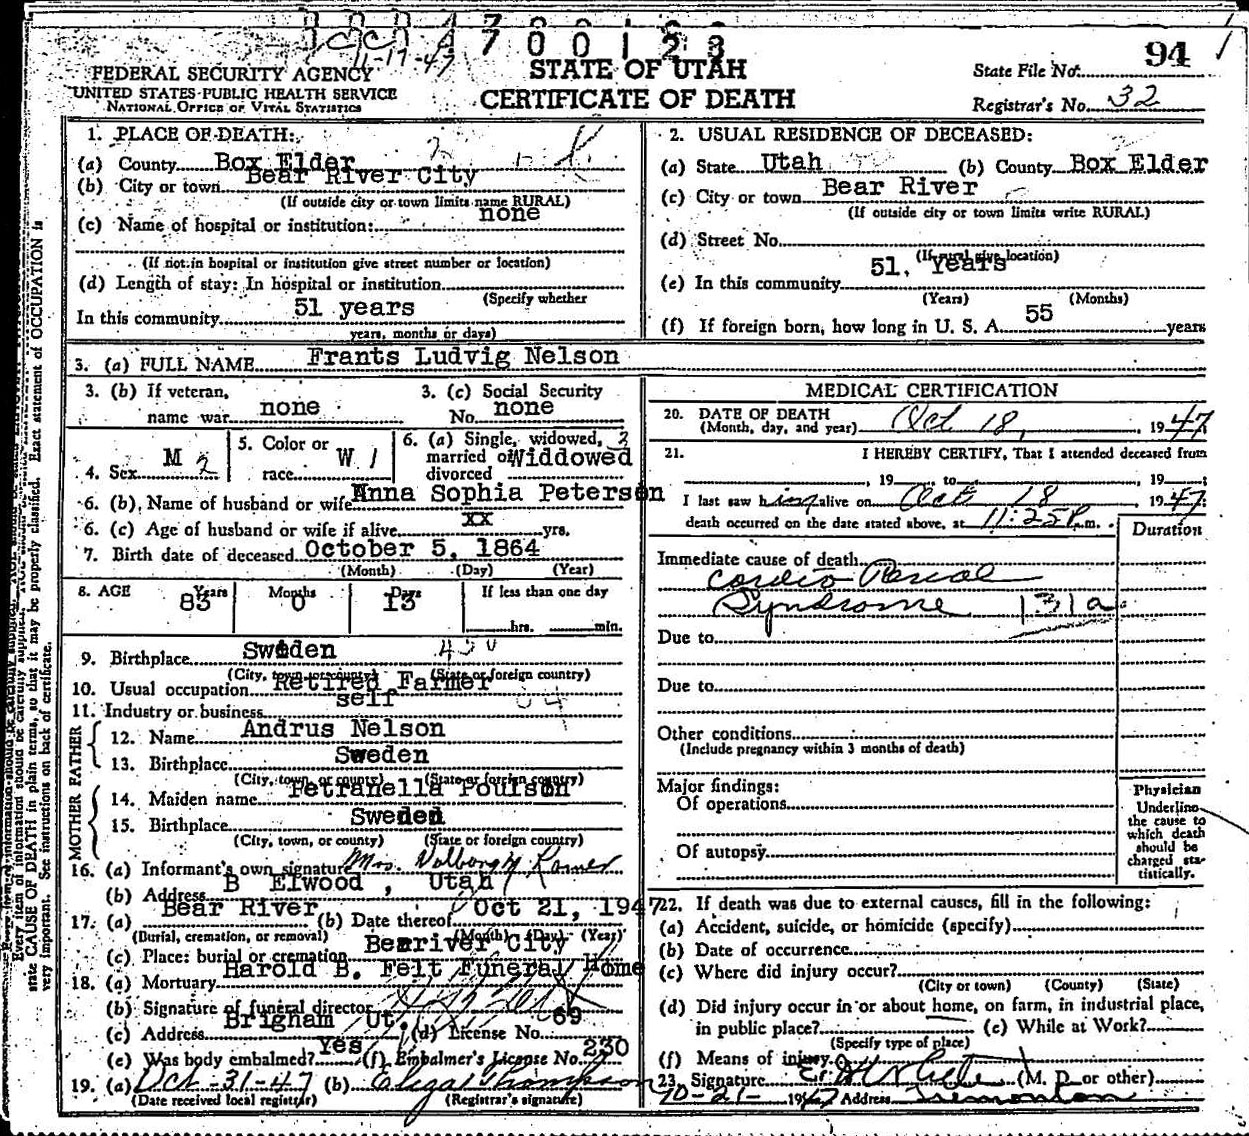 700123
11-17-47
FEDERAL SECURITY AGENCY
UNITED STATES PUBLIC HEALTH SERVICE
NATIONAL OFFICE OF VITAL STATISTICS
STATE OF UTAH
CERTIFICATE OF DEATH
State File No. 94
Registrar's No. 32
1. PLACE OF DEATH:
(a) County Box Elder
(b) City or town Bear River City
(If outside city or town limits name RURAL)
(c) Name of hospital or institution: none
(If not in hospital or institution give street number or location)
(d) Length of stay: In hospital or institution
(Specify whether
In this community 51 years
years, months or days)
2. USUAL RESIDENCE OF DECEASED:
(a) State Utah (b) County Box Elder
(c) City or town Bear River
(If outside city or town limits write RURAL)
(d) Street No.
(If rural give location)
(e) In this community 51, Years
(Years) (Months)
(f) If foreign born, how long in U. S. A. 55 years
3. (a) FULL NAME Frants Ludvig Nelson
3. (b) If veteran, name war none
3. (c) Social Security No. none
4. Sex M 2
5. Color or race W 1
6. (a) Single, widowed, married or divorced Widdowed
6. (b) Name of husband or wife Anna Sophia Peterson
6. (c) Age of husband or wife if alive xx yrs.
7. Birth date of deceased October 5, 1864
(Month) (Day) (Year)
8. AGE Years 83 Months 0 Days 13 If less than one day
hrs. min.
9. Birthplace Sweden
(City, town, or county) (State or foreign country)
10. Usual occupation Retired Farmer
11. Industry or business self
FATHER
12. Name Andrus Nelson
13. Birthplace Sweden
(City, town, or county) (State or foreign country)
MOTHER
14. Maiden name Petranella Poulson
15. Birthplace Sweden
(City, town, or county) (State or foreign country)
16. (a) Informant's own signature Mrs.
(b) Address B Elwood, Utah
17. (a) Bear River (b) Date thereof Oct 21, 1947
(Burial, cremation, or removal) (Month) (Day) (Year)
(c) Place: burial or cremation Bearriver City
18. (a) Mortuary Harold B. Felt Funeral Home
(b) Signature of funeral director
(c) Address Brigham Ut. (d) License No. 69
(e) Was body embalmed? Yes (f) Embalmer's License No. 230
19. (a) Oct-31-47 (b) Thompson
(Date received local registrar) (Registrar's signature)
MEDICAL CERTIFICATION
20. DATE OF DEATH
(Month, day, and year) Oct 18, 1947
21. I HEREBY CERTIFY, That I attended deceased from
, 19 , to , 19 ;
I last saw him alive on Oct 18 1947;
death occurred on the date stated above, at 11:25 P.m.
Duration
Immediate cause of death
Cardio Renal
Syndrome 131a
Due to
Due to
Other conditions
(Include pregnancy within 3 months of death)
Major findings:
Of operations
Of autopsy
Physician
Underline
the cause to
which death
should be
charged sta-
tistically.
22. If death was due to external causes, fill in the following:
(a) Accident, suicide, or homicide (specify)
(b) Date of occurrence
(c) Where did injury occur?
(City or town) (County) (State)
(d) Did injury occur in or about home, on farm, in industrial place,
in public place? (e) While at Work?
(Specify type of place)
(f) Means of injury
23. Signature (M. D. or other)
10-21- 1947 Address Tremonton
Every item of information should be carefully supplied.
state CAUSE OF DEATH in plain terms, so that it may be properly classified. Exact statement of OCCUPATION is
very important. See instructions on back of certificate.